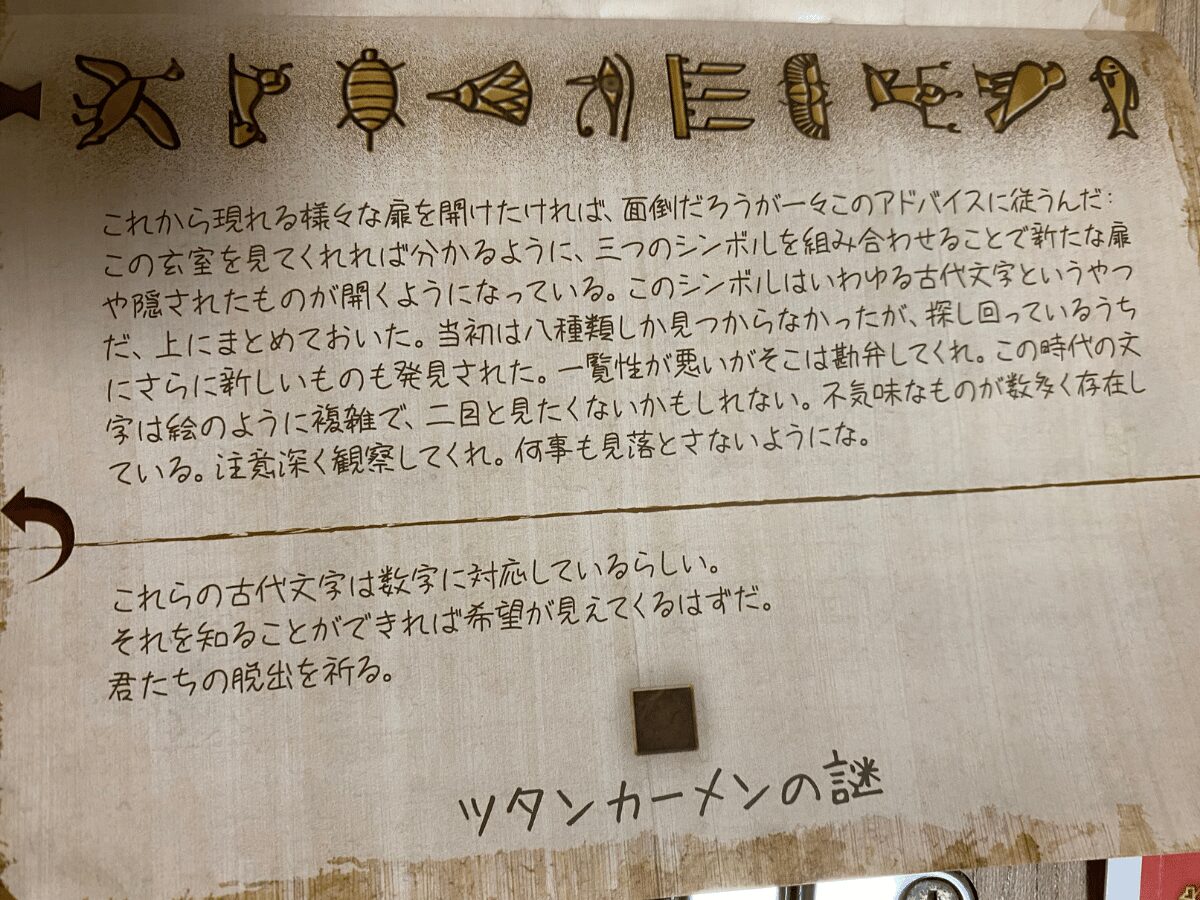 これから現れる様々な扉を開けたければ、面倒だろうが一々このアドバイスに従うんだ：
この玄室を見てくれれば分かるように、三つのシンボルを組み合わせることで新たな扉
や隠されたものが開くようになっている。このシンボルはいわゆる古代文字というやつ
だ、上にまとめておいた。当初は八種類しか見つからなかったが、探し回っているうち
にさらに新しいものも発見された。一覧性が悪いがそこは勘弁してくれ。この時代の文
字は絵のように複雑で、二目と見たくないかもしれない。不気味なものが数多く存在し
ている。注意深く観察してくれ。何事も見落とさないようにな。
これらの古代文字は数字に対応しているらしい。
それを知ることができれば希望が見えてくるはずだ。
君たちの脱出を祈る。
ツタンカーメンの謎